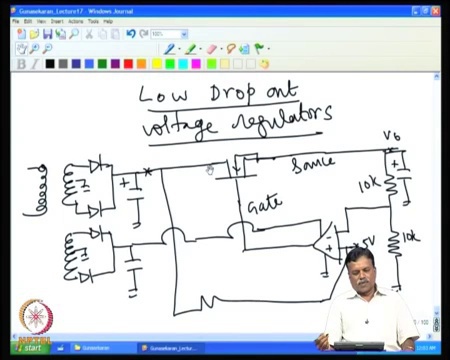 Gunasekaran_Lecture17 - Windows Journal
File Edit View Insert Actions Tools Help
100%
B I
Low Drop out
voltage regulators
Source
Vo
Gate
10k
5V
10k
start
Gunasekaran
Gunasekaran_Lectu...